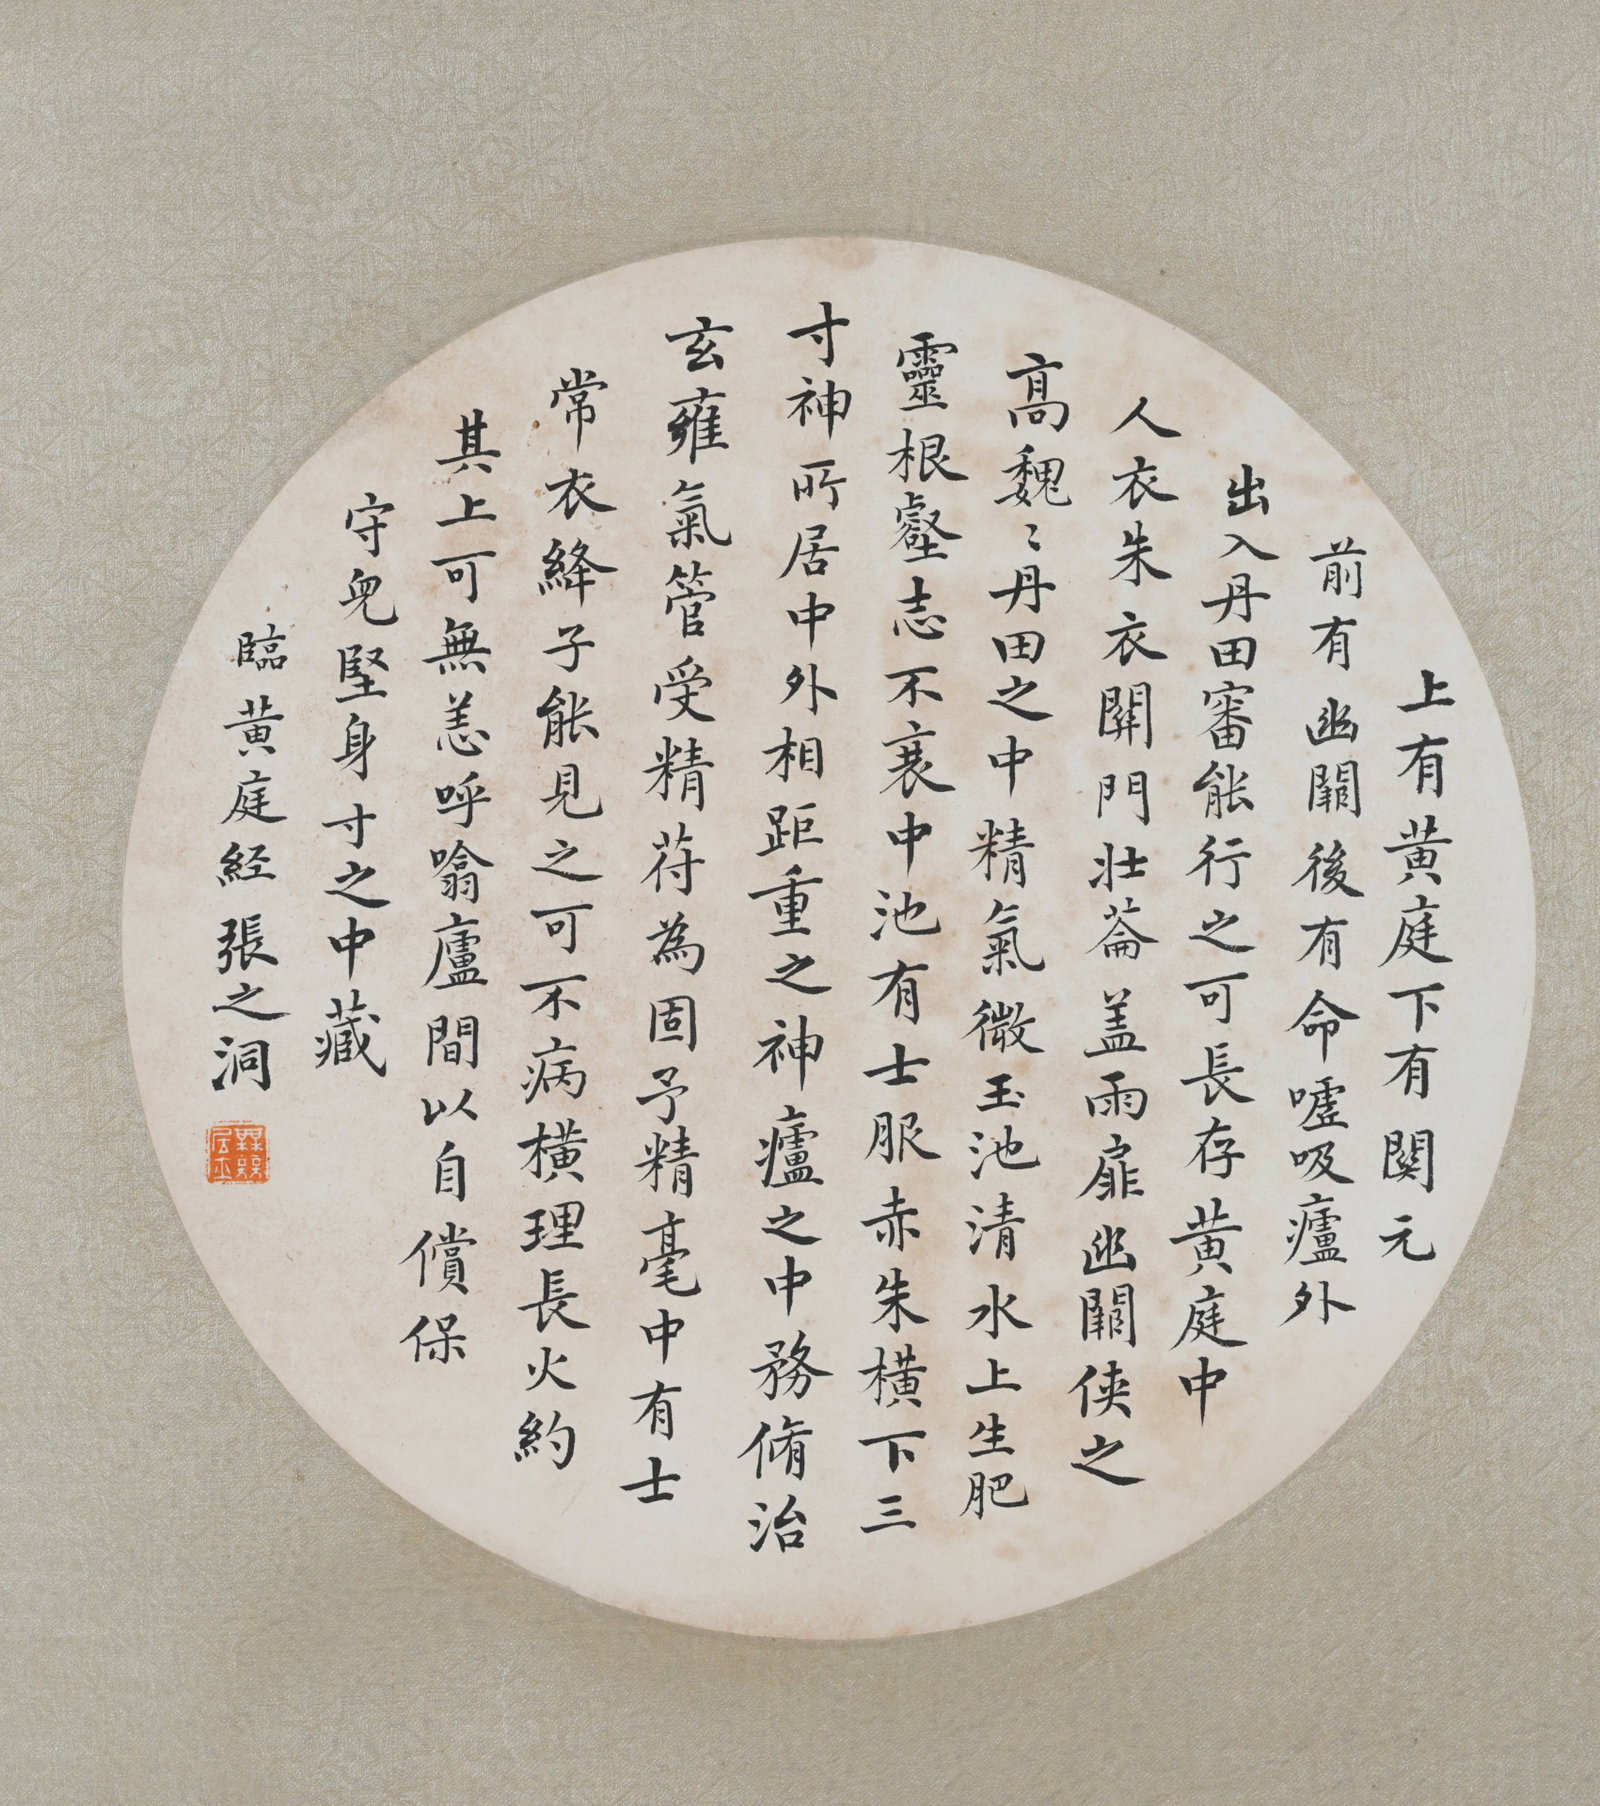 上有黄庭下有関元
前有幽闕後有命噓吸廬外
出入丹田審能行之可長存黄庭中
人衣朱衣関門壮蘥盖雨扉幽闕俠之
高魏〻丹田之中精氣微玉池清水上生肥
靈根堅志不衰中池有士服赤朱横下三
寸神所居中外相距重之神廬之中務脩治
玄雍氣管受精苻為固予精毫中有士
常衣絳子能見之可不病横理長尺約
其上可無恙呼噏廬間以自償保
守皃堅身寸之中藏
臨黄庭経張之洞